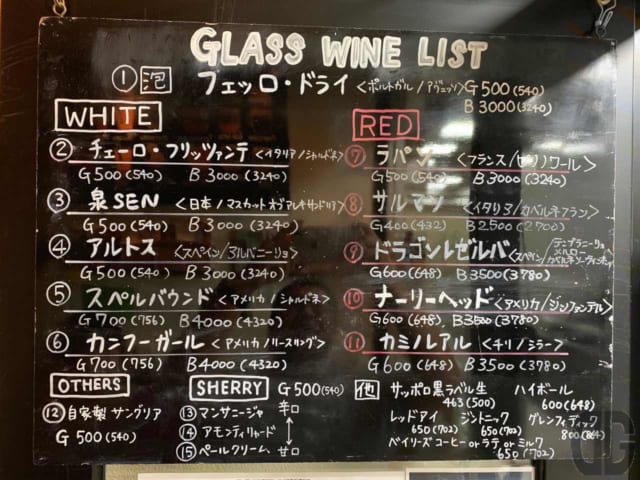 GLASS WINE LIST
① 泡 フェッロ・ドライ <ポルトガル/アジェッソ> G500(540)
B3000(3240)
WHITE
② チェーロ・フリッツァンテ <イタリア/シャルドネ>
G500(540) B3000(3240)
③ 泉SEN <日本/マスカットオブアレキサンドリア>
G500(540) B3000(3240)
④ アルトス <スペイン/アルバニーリョ>
G500(540) B3000(3240)
⑤ スペルバウンド <アメリカ/シャルドネ>
G700(756) B4000(4320)
⑥ カンフーガール <アメリカ/リースリング>
G700(756) B4000(4320)
RED
⑦ ラパン <フランス/ピノノワール>
G500(540) B3000(3240)
⑧ サルマン <イタリア/カベルネフラン>
G400(432) B2500(2700)
⑨ ドラゴンレゼルバ <スペイン/テンプラニーリョ
メルロー
カベルネソーヴィニヨン>
G600(648) B3500(3780)
⑩ ナーリーヘッド <アメリカ/ジンファンデル>
G600(648) B3500(3780)
⑪ カミルアル <チリ/シラー>
G600(648) B3500(3780)
OTHERS
⑫ 自家製 サングリア
G500(540)
SHERRY G500(540)
⑬ マンサニージャ 辛口
⑭ アモンティリャード
⑮ ペールクリーム 甘口
他 サッポロ黒ラベル生 ハイボール
463(500) 600(648)
レッドアイ ジントニック グレンフィディック
650(702) 650(702) 800(864)
ベイリーズコーヒー or ラテ or ミルク
650(702)